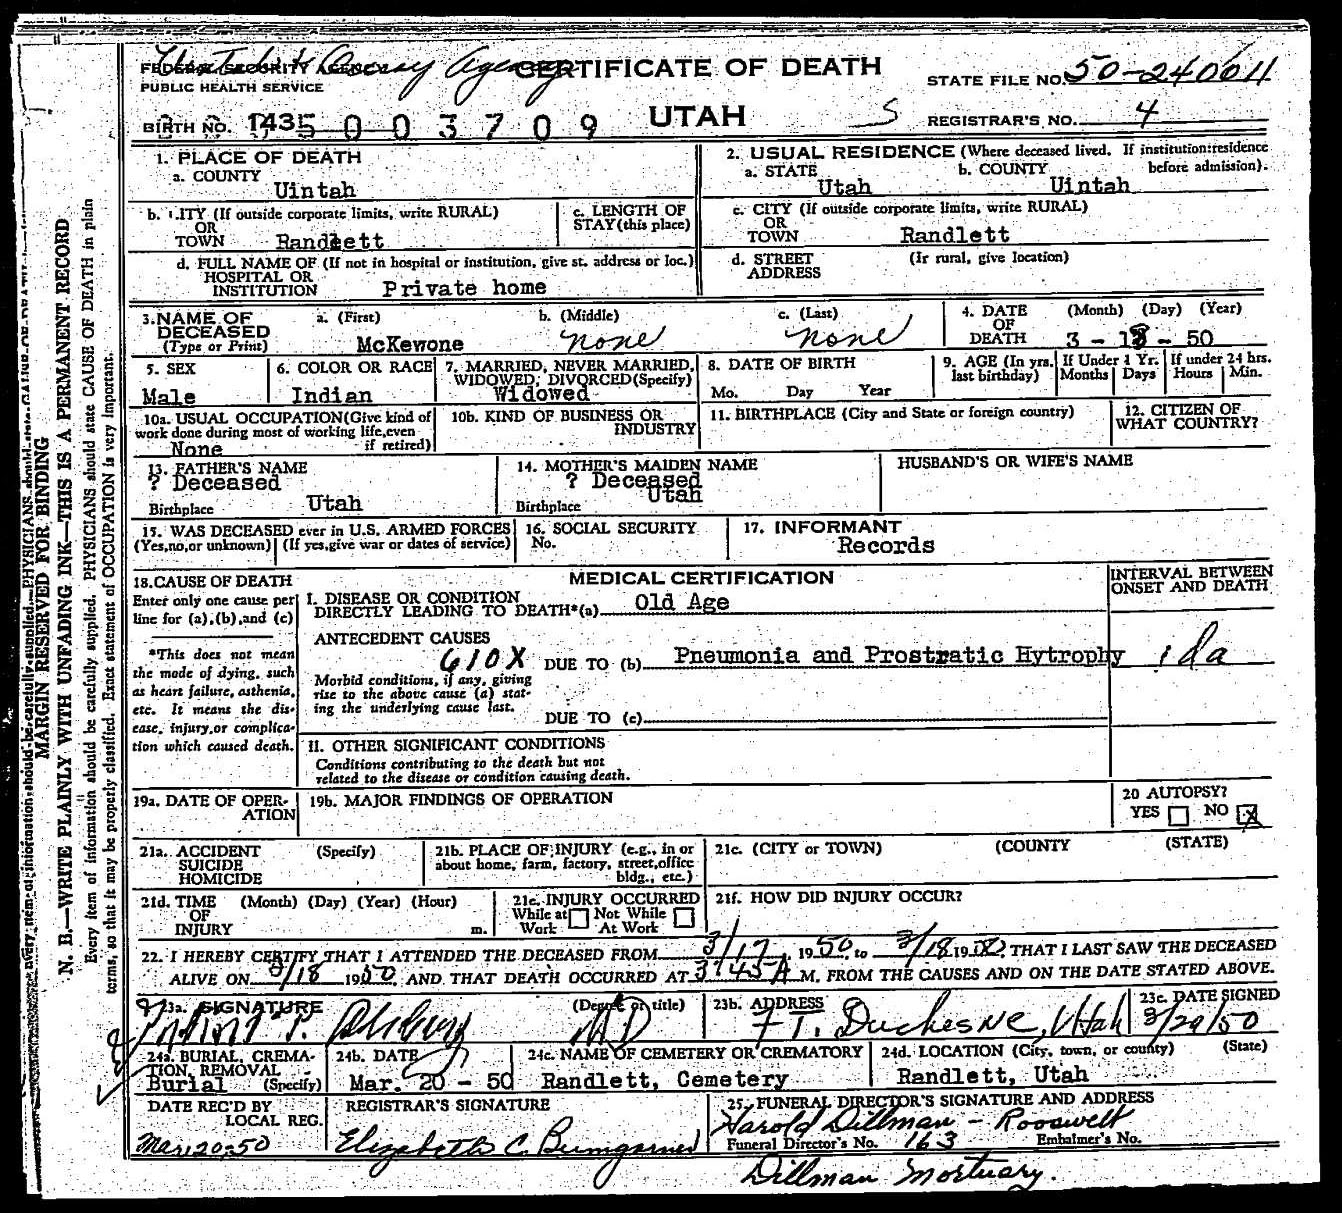 Uintah & Ouray Agency
FEDERAL SECURITY AGENCY
PUBLIC HEALTH SERVICE
CERTIFICATE OF DEATH
STATE FILE NO. 50-240011
BIRTH NO. 143 5 0 0 3 7 0 9
UTAH
S
REGISTRAR'S NO. 4
1. PLACE OF DEATH
a. COUNTY
Uintah
2. USUAL RESIDENCE (Where deceased lived. If institution: residence before admission).
a. STATE
Utah
b. COUNTY
Uintah
b. CITY (If outside corporate limits, write RURAL)
OR
TOWN Randlett
c. LENGTH OF
STAY (this place)
c. CITY (If outside corporate limits, write RURAL)
OR
TOWN Randlett
d. FULL NAME OF (If not in hospital or institution, give st. address or loc.)
HOSPITAL OR
INSTITUTION Private home
d. STREET (If rural, give location)
ADDRESS
3. NAME OF
DECEASED
(Type or Print)
a. (First)
McKewone
b. (Middle)
none
c. (Last)
none
4. DATE
OF
DEATH
(Month) (Day) (Year)
3 - 18 - 50
5. SEX
Male
6. COLOR OR RACE
Indian
7. MARRIED, NEVER MARRIED,
WIDOWED, DIVORCED (Specify)
Widowed
8. DATE OF BIRTH
Mo. Day Year
9. AGE (In yrs.
last birthday)
If Under 1 Yr.
Months Days
If under 24 hrs.
Hours Min.
10a. USUAL OCCUPATION (Give kind of
work done during most of working life, even
if retired)
None
10b. KIND OF BUSINESS OR
INDUSTRY
11. BIRTHPLACE (City and State or foreign country)
12. CITIZEN OF
WHAT COUNTRY?
13. FATHER'S NAME
? Deceased
Birthplace Utah
14. MOTHER'S MAIDEN NAME
? Deceased
Utah
Birthplace
HUSBAND'S OR WIFE'S NAME
15. WAS DECEASED ever in U.S. ARMED FORCES
(Yes, no, or unknown) (If yes, give war or dates of service)
16. SOCIAL SECURITY
No.
17. INFORMANT
Records
18. CAUSE OF DEATH
Enter only one cause per
line for (a), (b), and (c)
*This does not mean
the mode of dying, such
as heart failure, asthenia,
etc. It means the dis-
ease, injury, or complica-
tion which caused death.
MEDICAL CERTIFICATION
INTERVAL BETWEEN
ONSET AND DEATH
I. DISEASE OR CONDITION
DIRECTLY LEADING TO DEATH*(a) Old Age
ANTECEDENT CAUSES
610X DUE TO (b) Pneumonia and Prostratic Hytrophy
Morbid conditions, if any, giving
rise to the above cause (a) stat-
ing the underlying cause last.
DUE TO (c)
II. OTHER SIGNIFICANT CONDITIONS
Conditions contributing to the death but not
related to the disease or condition causing death.
19a. DATE OF OPER-
ATION
19b. MAJOR FINDINGS OF OPERATION
20 AUTOPSY?
YES NO X
21a. ACCIDENT (Specify)
SUICIDE
HOMICIDE
21b. PLACE OF INJURY (e.g., in or
about home, farm, factory, street, office
bldg., etc.)
21c. (CITY or TOWN) (COUNTY (STATE)
21d. TIME (Month) (Day) (Year) (Hour)
OF
INJURY m.
21e. INJURY OCCURRED
While at Not While
Work At Work
21f. HOW DID INJURY OCCUR?
22. I HEREBY CERTIFY THAT I ATTENDED THE DECEASED FROM 3/17 1950, to 3/18 1950, THAT I LAST SAW THE DECEASED
ALIVE ON 3/18 1950, AND THAT DEATH OCCURRED AT 3:45A M. FROM THE CAUSES AND ON THE DATE STATED ABOVE.
23a. SIGNATURE (Degree or title)
MD
23b. ADDRESS
FT. Duchesne, Utah
23c. DATE SIGNED
3/20/50
24a. BURIAL, CREMA-
TION, REMOVAL
Burial (Specify)
24b. DATE
Mar. 20 - 50
24c. NAME OF CEMETERY OR CREMATORY
Randlett, Cemetery
24d. LOCATION (City, town, or county) (State)
Randlett, Utah
DATE REC'D BY
LOCAL REG.
Mar. 20-50
REGISTRAR'S SIGNATURE
Elizabeth C. Bumgarner
25. FUNERAL DIRECTOR'S SIGNATURE AND ADDRESS
Harold Dillman - Roosevelt
Funeral Director's No. 163 Embalmer's No.
Dillman Mortuary.
MARGIN RESERVED FOR BINDING
N. B.—WRITE PLAINLY WITH UNFADING INK—THIS IS A PERMANENT RECORD
Every item of information should be carefully supplied. PHYSICIANS should state CAUSE OF DEATH in plain
terms, so that it may be properly classified. Exact statement of OCCUPATION is very important.